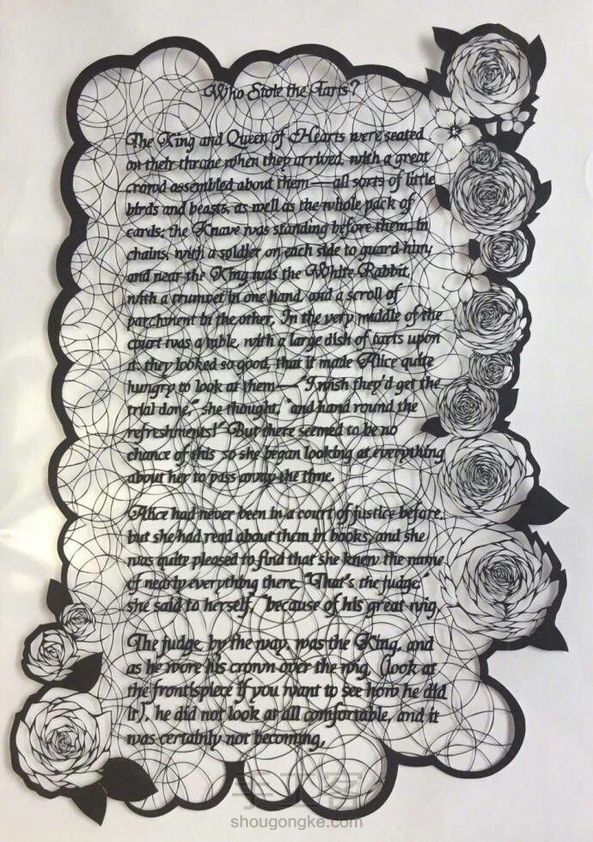 Who Stole the Tarts?
The King and Queen of Hearts were seated
on their throne when they arrived, with a great
crowd assembled about them—all sorts of little
birds and beasts, as well as the whole pack of
cards: the Knave was standing before them, in
chains, with a soldier on each side to guard him;
and near the King was the White Rabbit,
with a trumpet in one hand, and a scroll of
parchment in the other. In the very middle of the
court was a table, with a large dish of tarts upon
it: they looked so good, that it made Alice quite
hungry to look at them—"I wish they'd get the
trial done," she thought, "and hand round the
refreshments!" But there seemed to be no
chance of this, so she began looking at everything
about her to pass away the time.
Alice had never been in a court of justice before,
but she had read about them in books, and she
was quite pleased to find that she knew the name
of nearly everything there. "That's the judge,"
she said to herself, "because of his great wig."
The judge, by the way, was the King, and
as he wore his crown over the wig, (look at
the frontispiece if you want to see how he did
it), he did not look at all comfortable, and it
was certainly not becoming.
手工客
shougongke.com